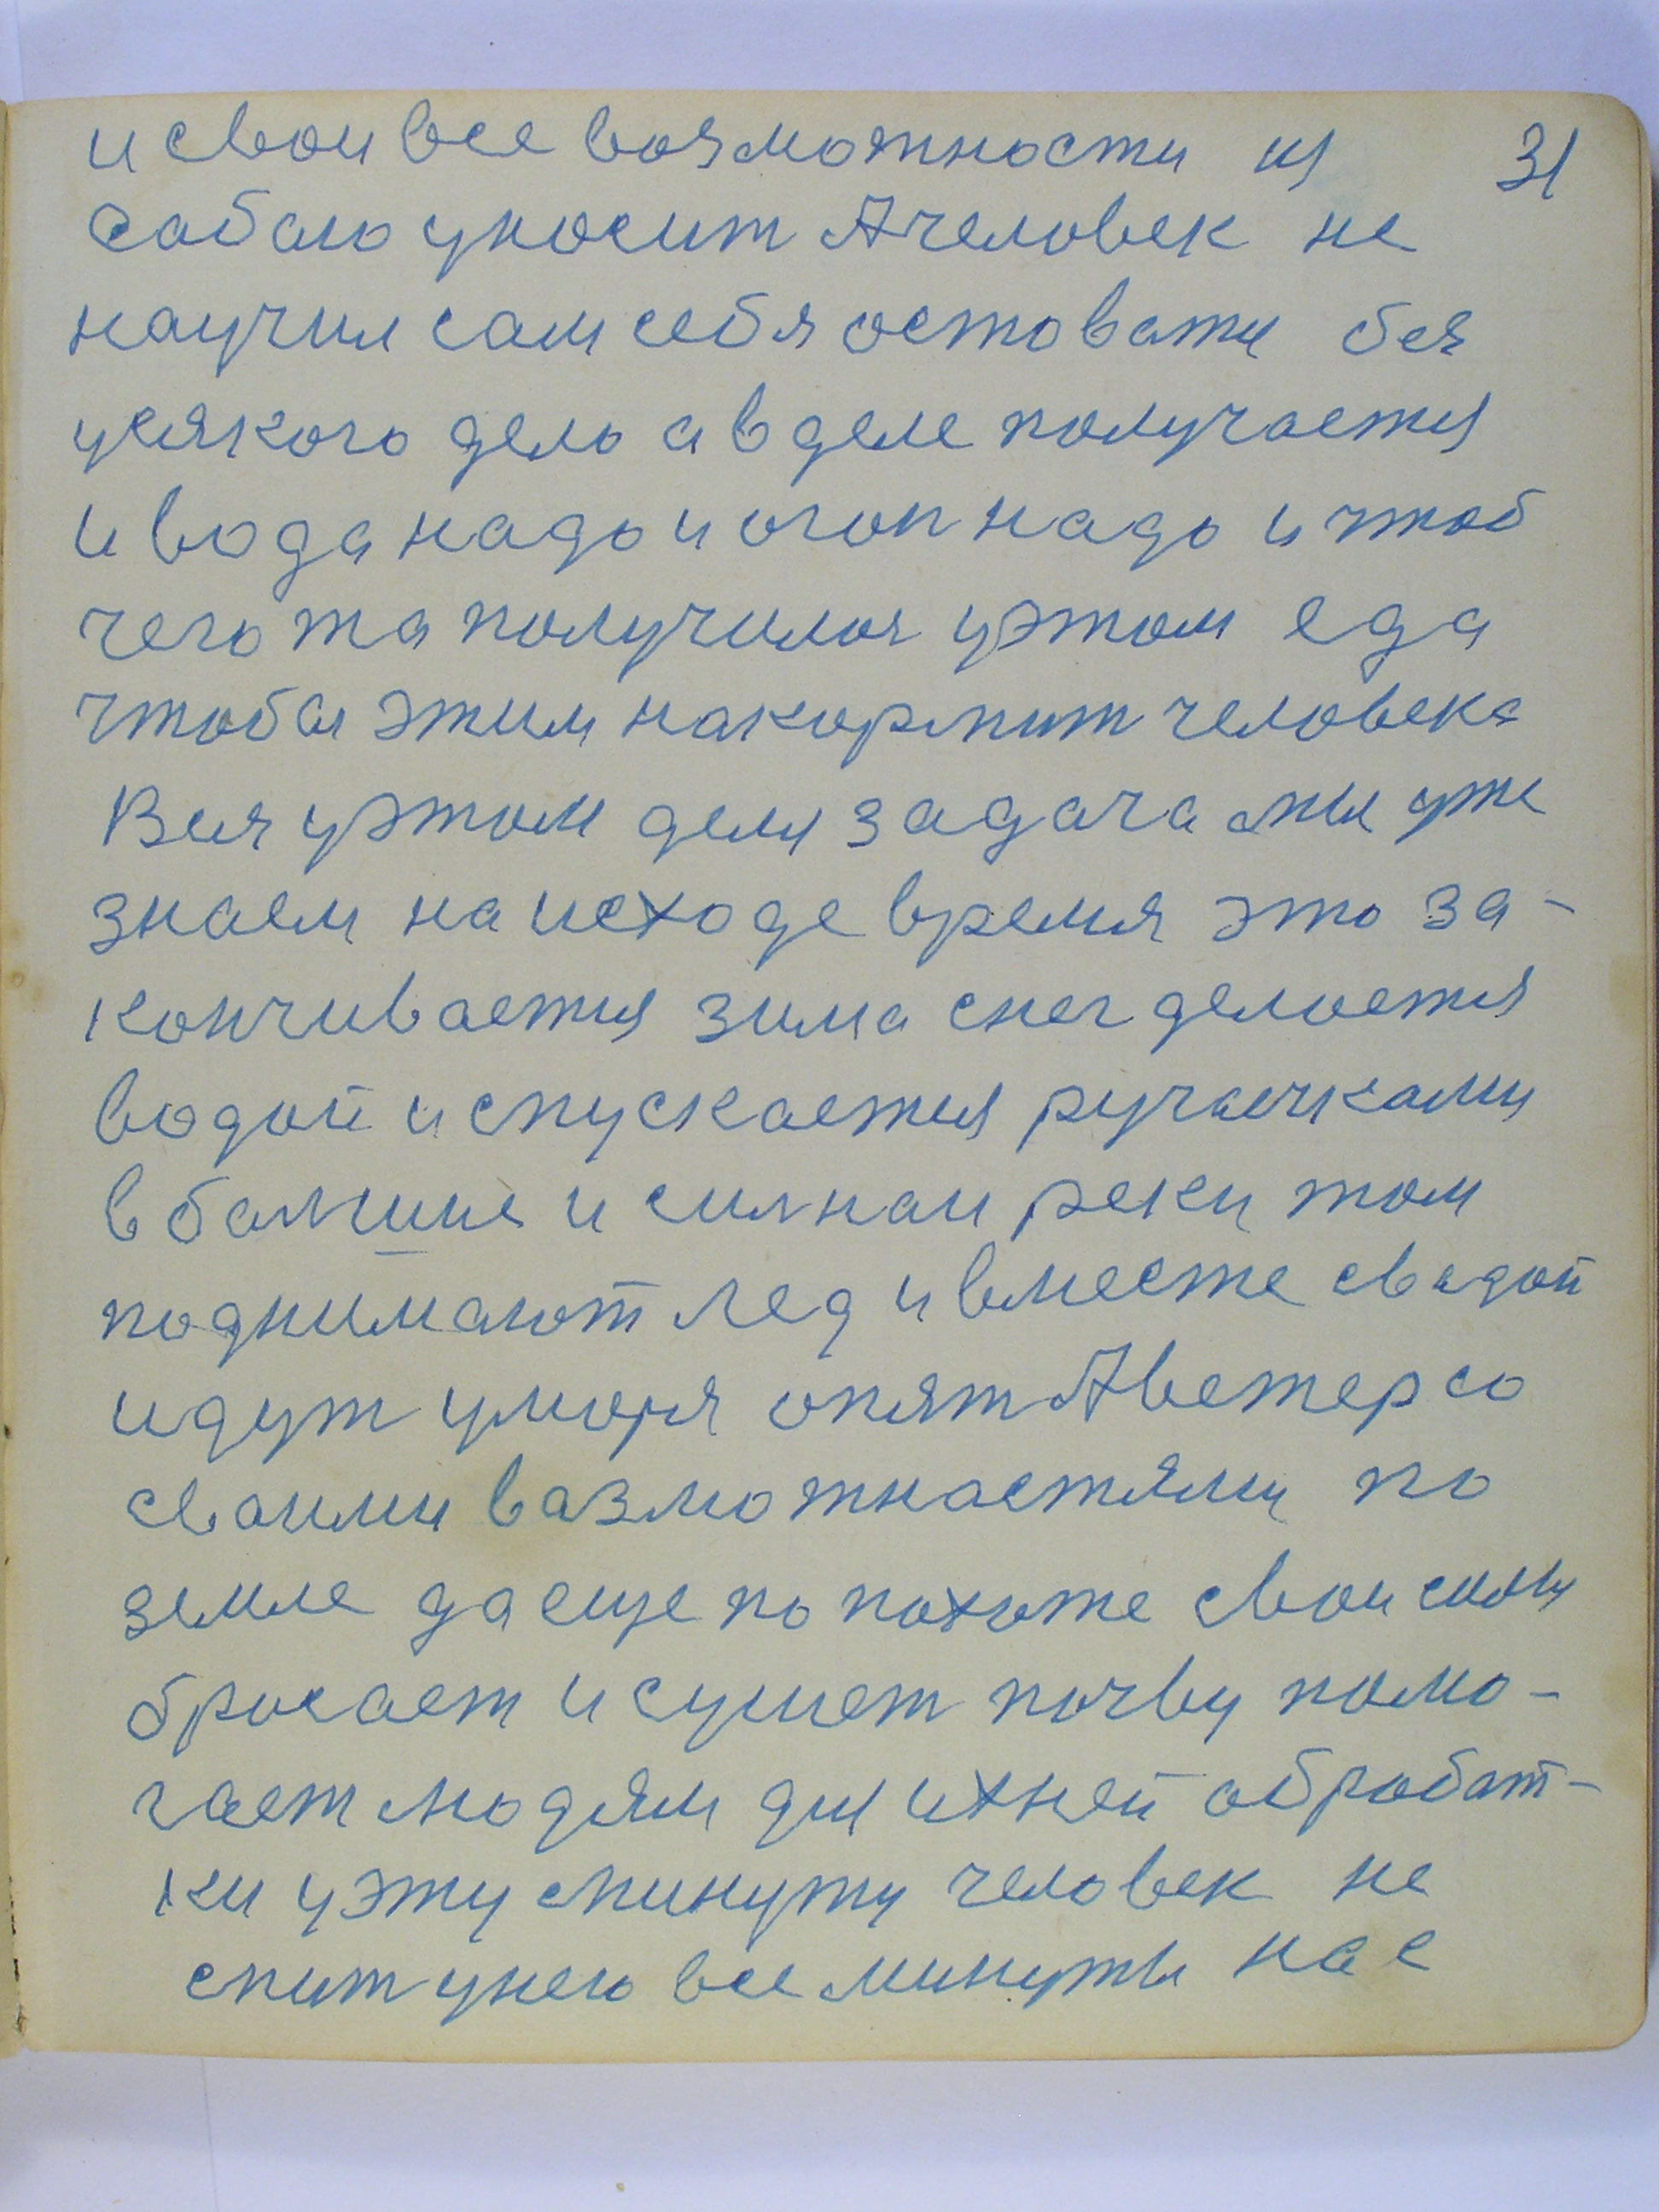 и свои все возможности из 31
сабаю уносит А человек не
научил сам себя оставати без
усякого дело а в деле получается
и вода надо и огон надо и чтоб
чегота получилос у этом еда
чтобы этим накормит человека
Вся у этом деля задача мы уже
знаем на исходе время это за-
кончивается зима снег делается
водой и спускается ручаечками
в балшие и силнаи реки том
поднимают лед и вместе с вадой
идут у моря опят А ветер со
сваими вазможнастями по
земле да еще по похоже свои силы
бросает и сушет почву помо-
гает людям для ихней обработ-
ки у эту минуту человек не
спит у него все минуты нае